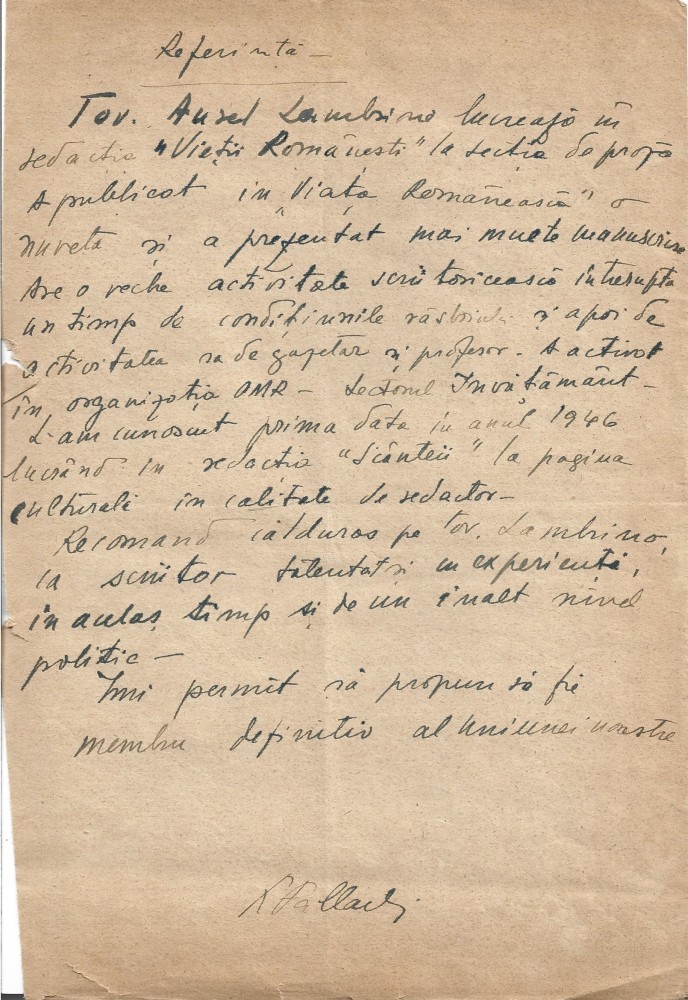 Referință —
Tov. Aurel Lambrino lucrează în
redacția "Vieții Românești" la secția de proză
A publicat in "Viața Românească" o
nuvelă și a prezentat mai multe manuscrise
Are o veche activitate scriitoricească întreruptă
un timp de condițiunile răsboiului și apoi de
activitatea sa de gazetar și profesor. A activat
în organizația PMR — Sectorul Învățământ —
L-am cunoscut prima dată in anul 1946
lucrând in redacția "Scânteii" la pagina
culturală in calitate de redactor —
Recomand călduros pe tov. Lambrino,
ca scriitor talentat și cu experiență,
în acelaș timp și de un înalt nivel
politic —
Îmi permit să propun să fie
membru definitiv al Uniunei noastre